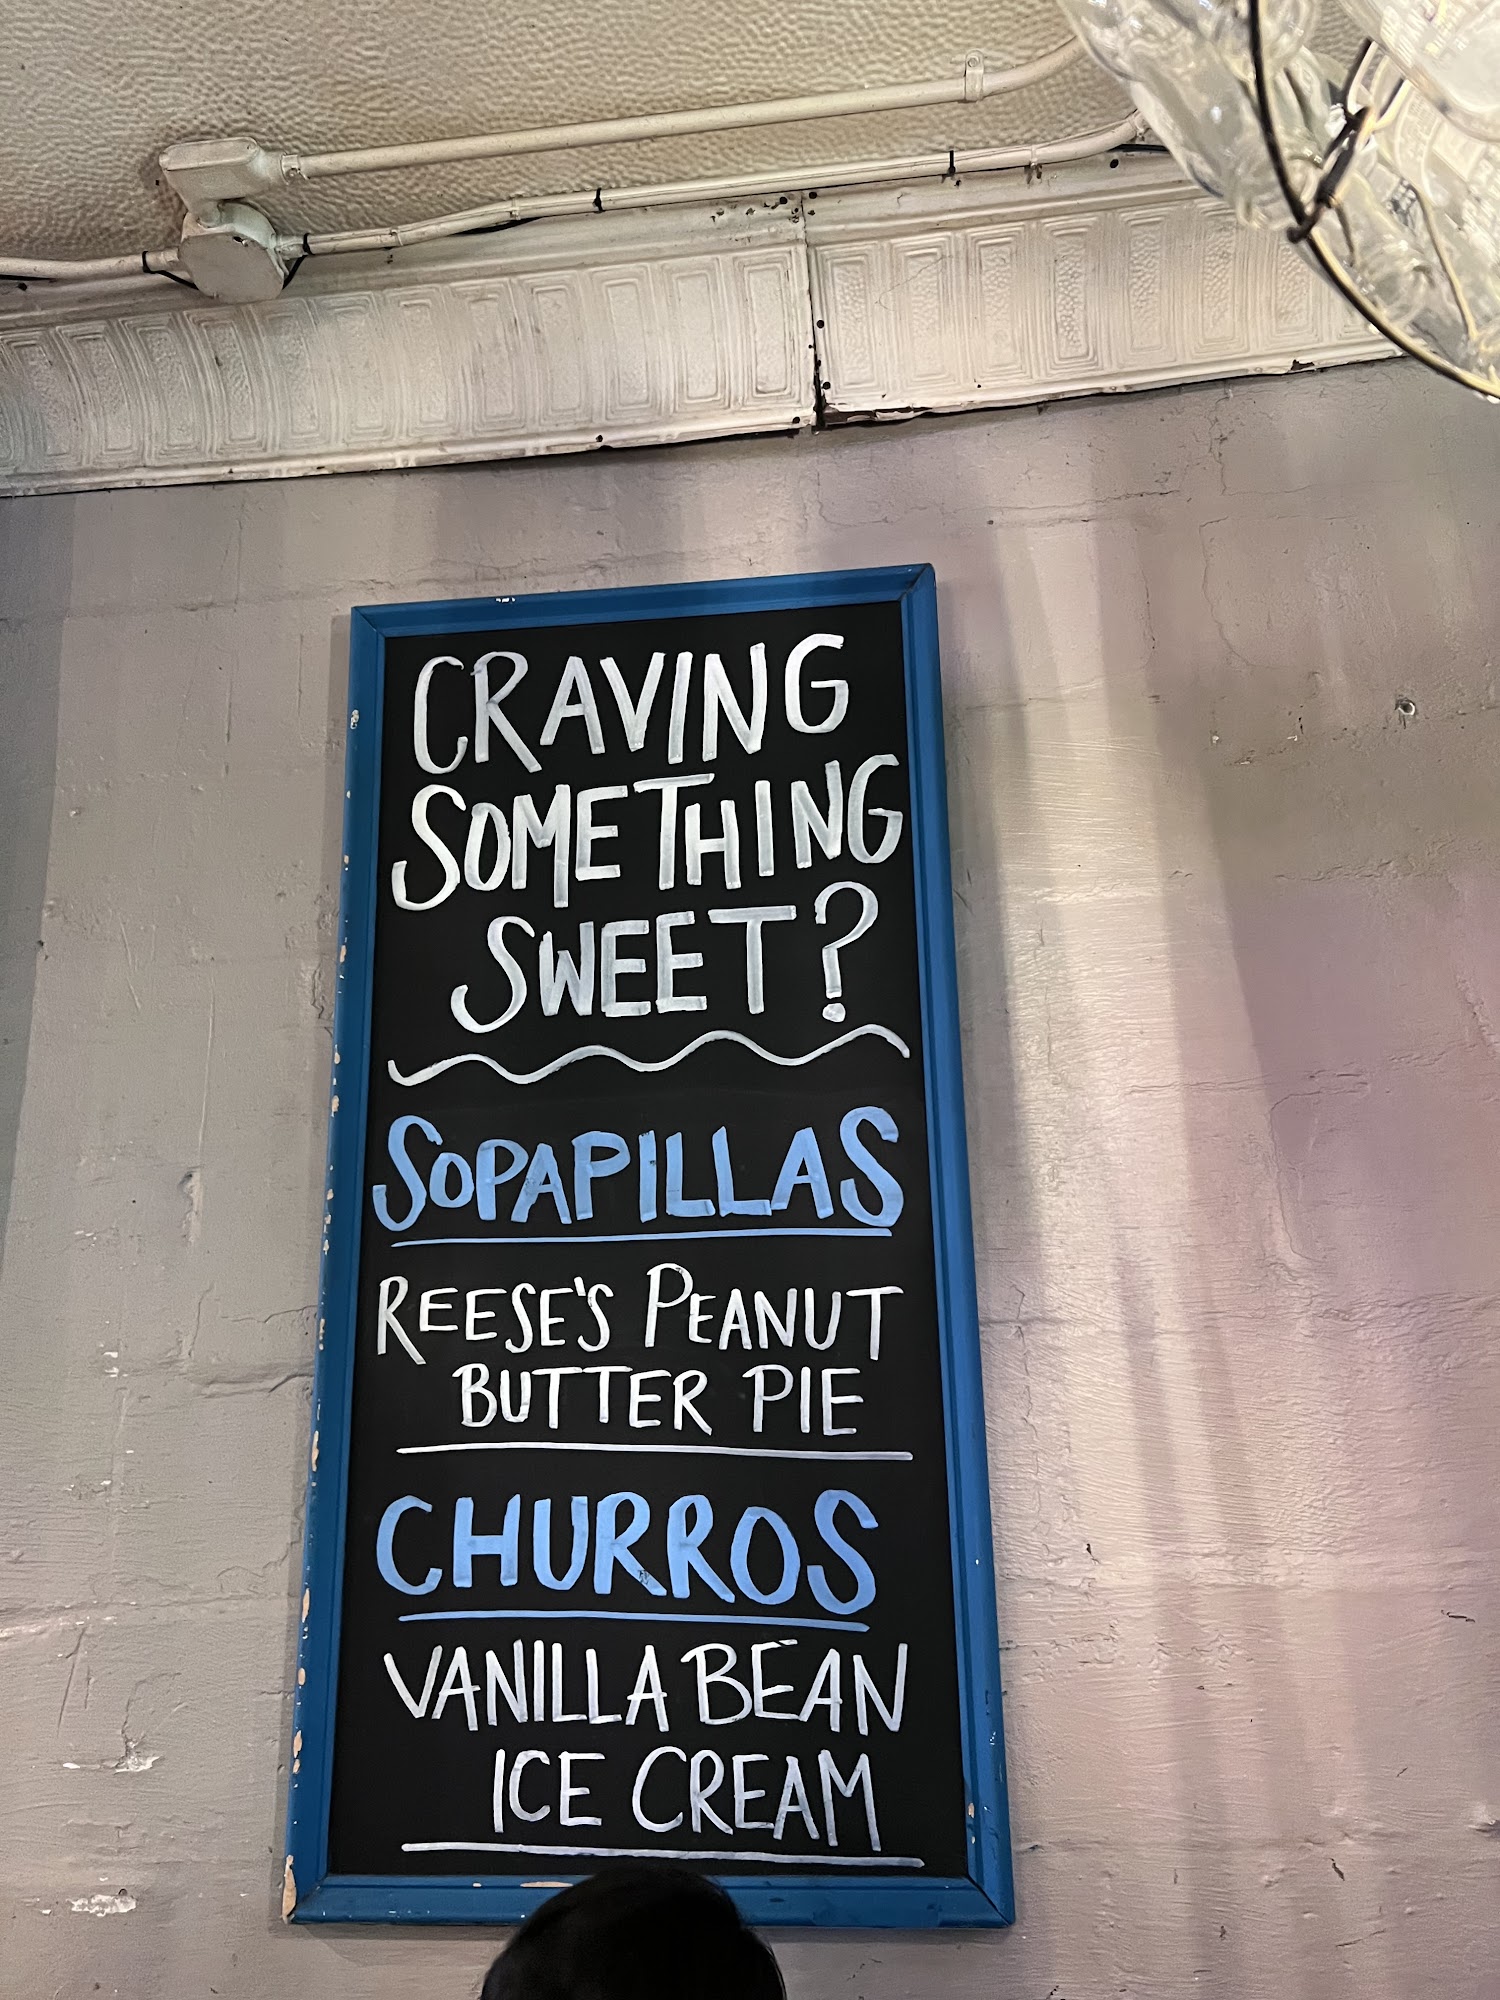 CRAVING
SOMETHING
SWEET?
SOPAPILLAS
REESE'S PEANUT
BUTTER PIE
CHURROS
VANILLA BEAN
ICE CREAM